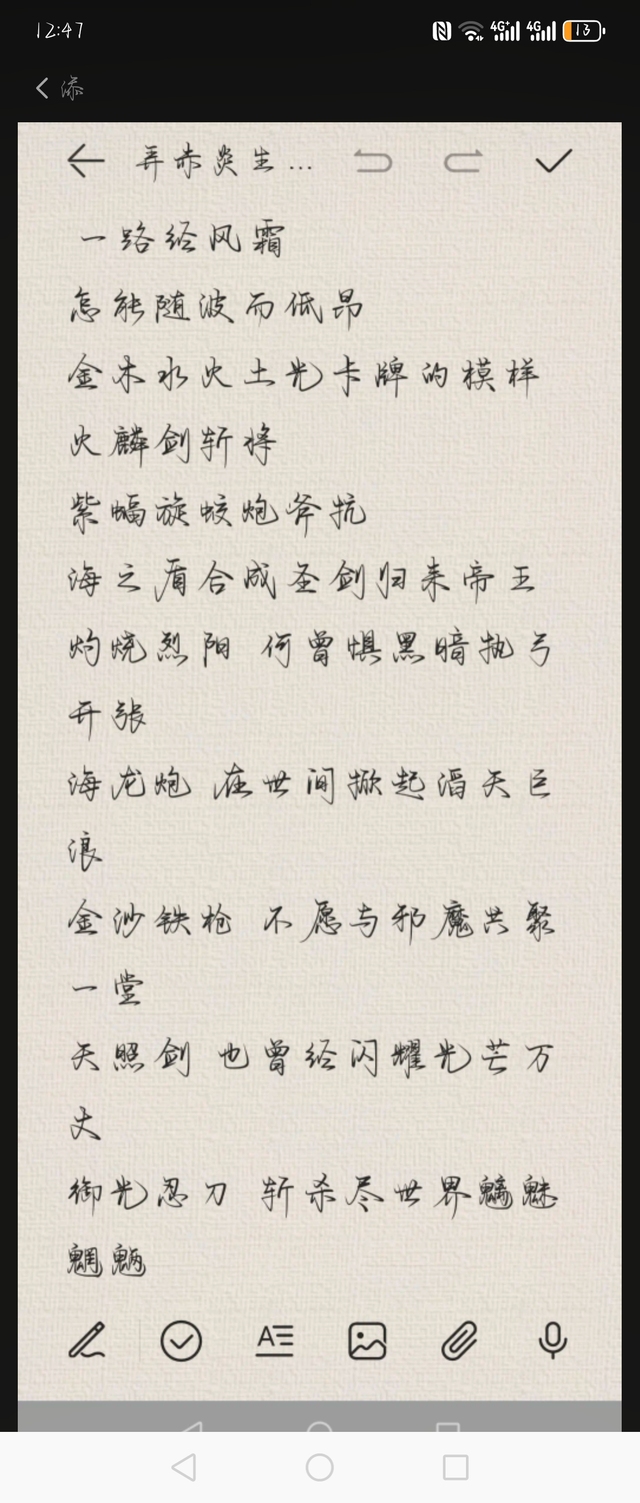 12:47
4G+ 4G 13
添
弄赤炎生...
一路经风霜
怎能随波而低昂
金木水火土光卡牌的模样
火麟剑斩将
紫蝠旋蛟炮斧抗
海之盾合成圣剑归来帝王
灼烧烈阳 何曾惧黑暗执弓
开张
海龙炮 在世间掀起滔天巨
浪
金沙铁枪 不愿与邪魔共聚
一堂
天照剑 也曾经闪耀光芒万
丈
御光忍刀 斩杀尽世界魑魅
魍魉